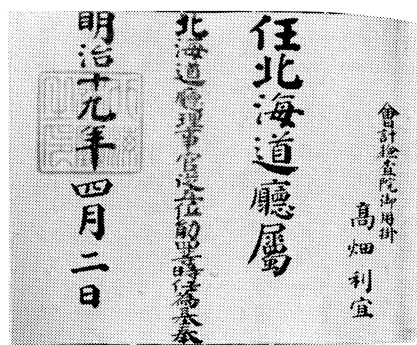 會計検査院御用掛
高畑利宜
任北海道廳属
北海道廳理事官從五位勲四等時任為基奉
明治十九年四月二日